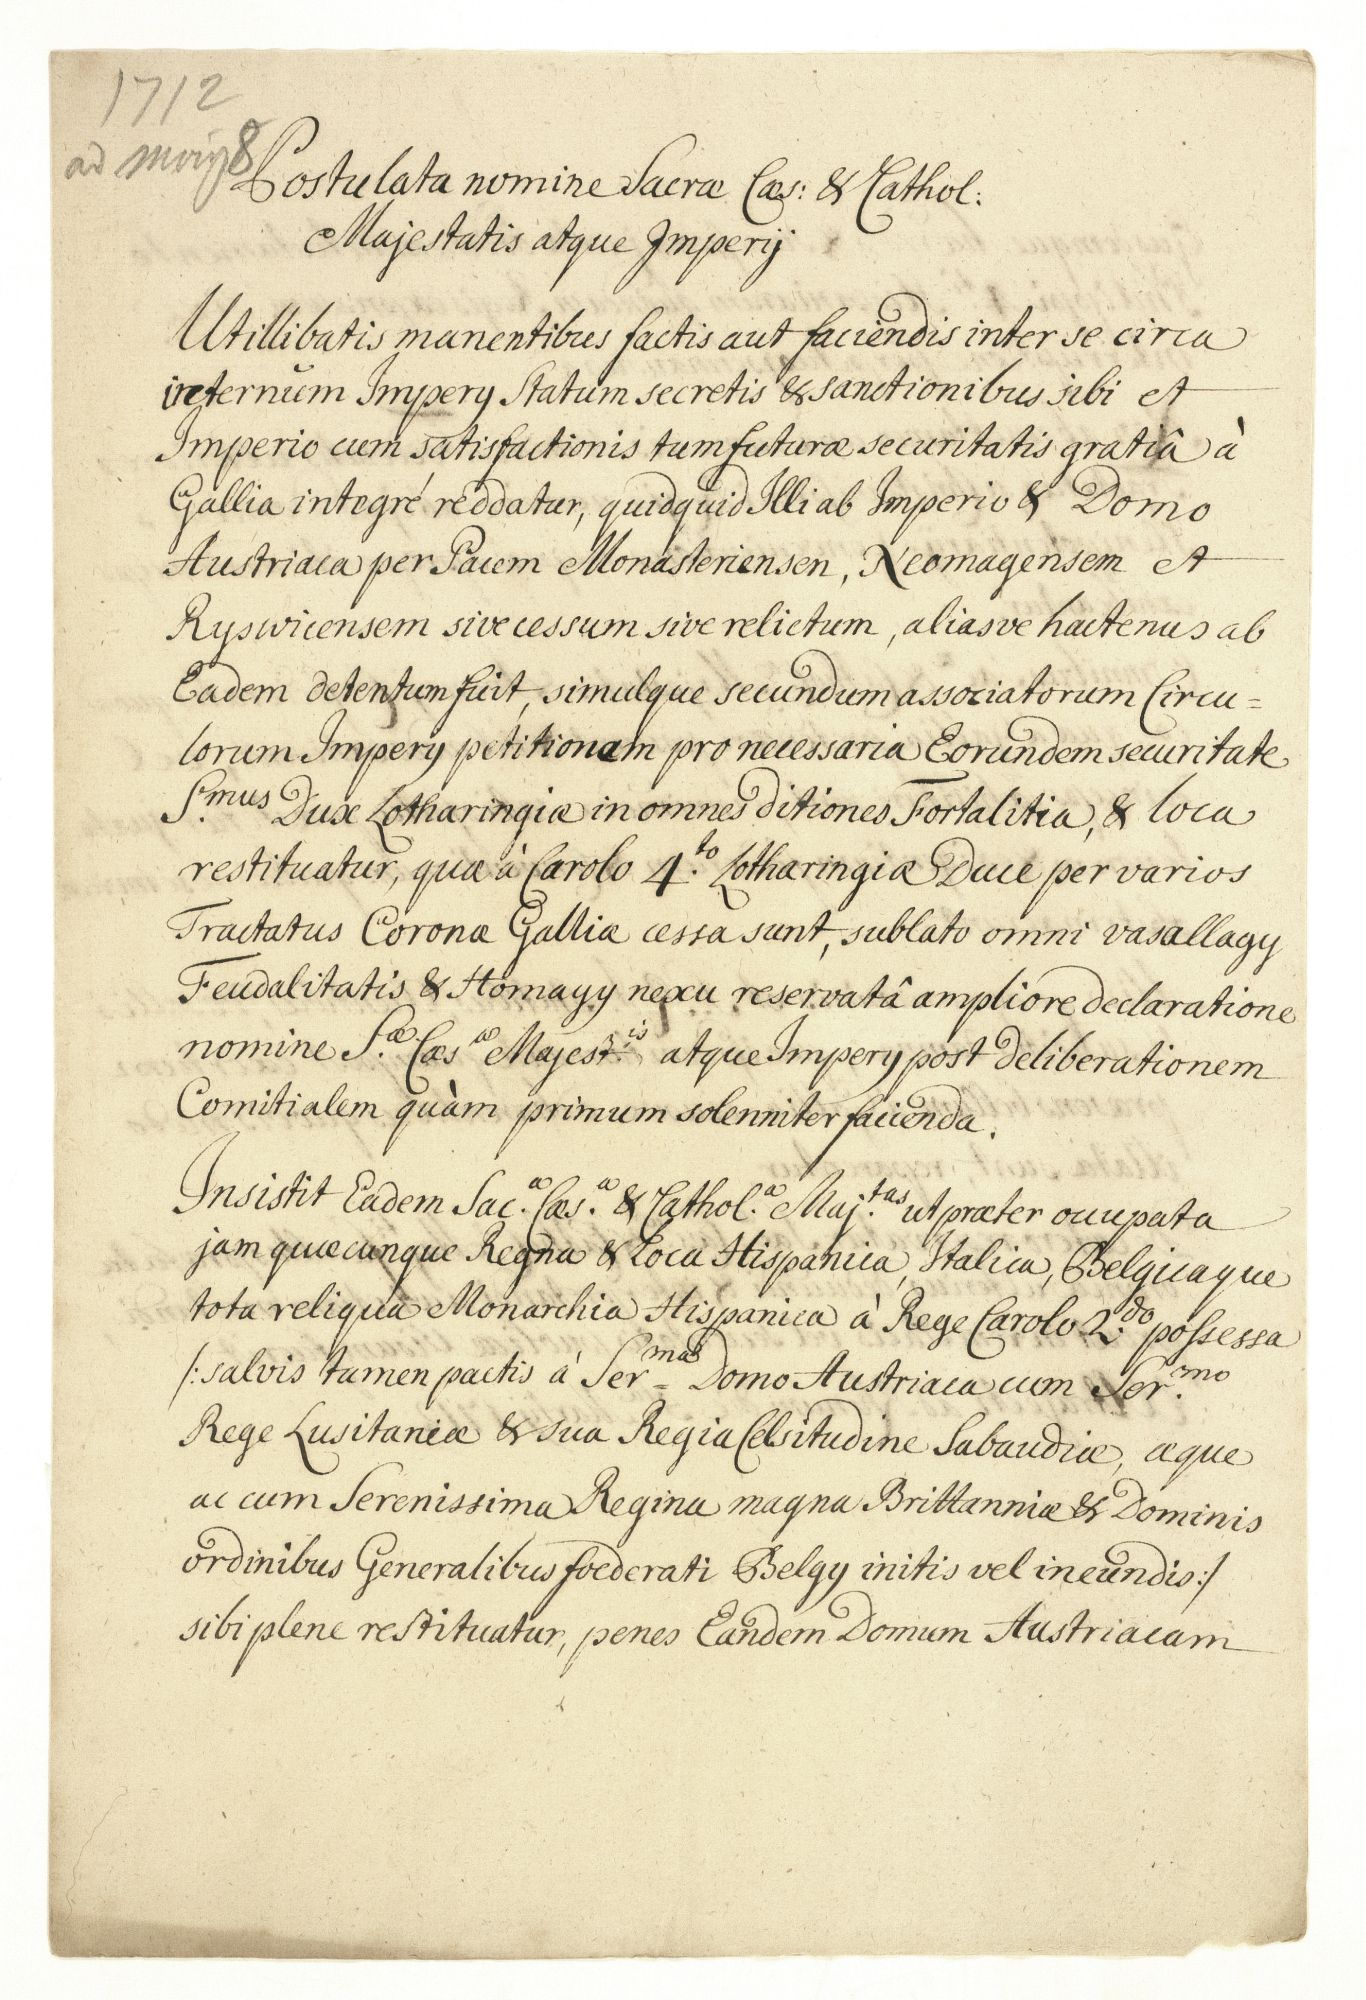 1712
ad 8
Postulata nomine Sacræ Cæs: & Cathol:
Majestatis atque Imperij
Utillibatis manentibus factis aut faciendis inter se circa
internum Impery Statum secretis & sanctionibus sibi et
Imperio cum satisfactionis tum futuræ securitatis gratiâ à
Gallia integré reddatur, quidquid Illi ab Imperio & Domo
Austriaca per Pacem Monasteriensen, Neomagensem et
Ryswicensem sive cessum sive relictum, aliasve hactenus ab
Eadem detentum fuit, simulque secundum associatorum Circu=
lorum Impery petitionem pro necessaria Eorundem securitate
S.mus Dux Lotharingiæ in omnes ditiones Fortalitia, & loca
restituatur, quæ à Carolo 4.to Lotharingiæ Duce per varios
Tractatus Coronæ Galliæ cessa sunt, sublato omni vasallagy
Feudalitatis & Homagy nexu reservatâ ampliore declaratione
nomine S.æ Cæs æ Majest.is atque Impery post deliberationem
Comitialem quàm primum solenniter facienda.
Insistit Eadem Sac.a Cæs.a & Cathol.a Maj.tas ut præter occupata
jam quæcunque Regna & Loca Hispanica, Italica, Belgicaque
tota reliqua Monarchia Hispanica à Rege Carolo 2.do possessa
/:salvis tamen pactis á Ser=ma Domo Austriaca cum Ser.mo
Rege Lusitaniæ & sua Regia Celsitudine Sabaudiæ, æque
ac cum Serenissima Regina magna Brittanniæ & Dominis
ordinibus Generalibus foederati Belgy initis vel ineundis:/
sibi plene restituatur, penes Eandem Domum Austriacam